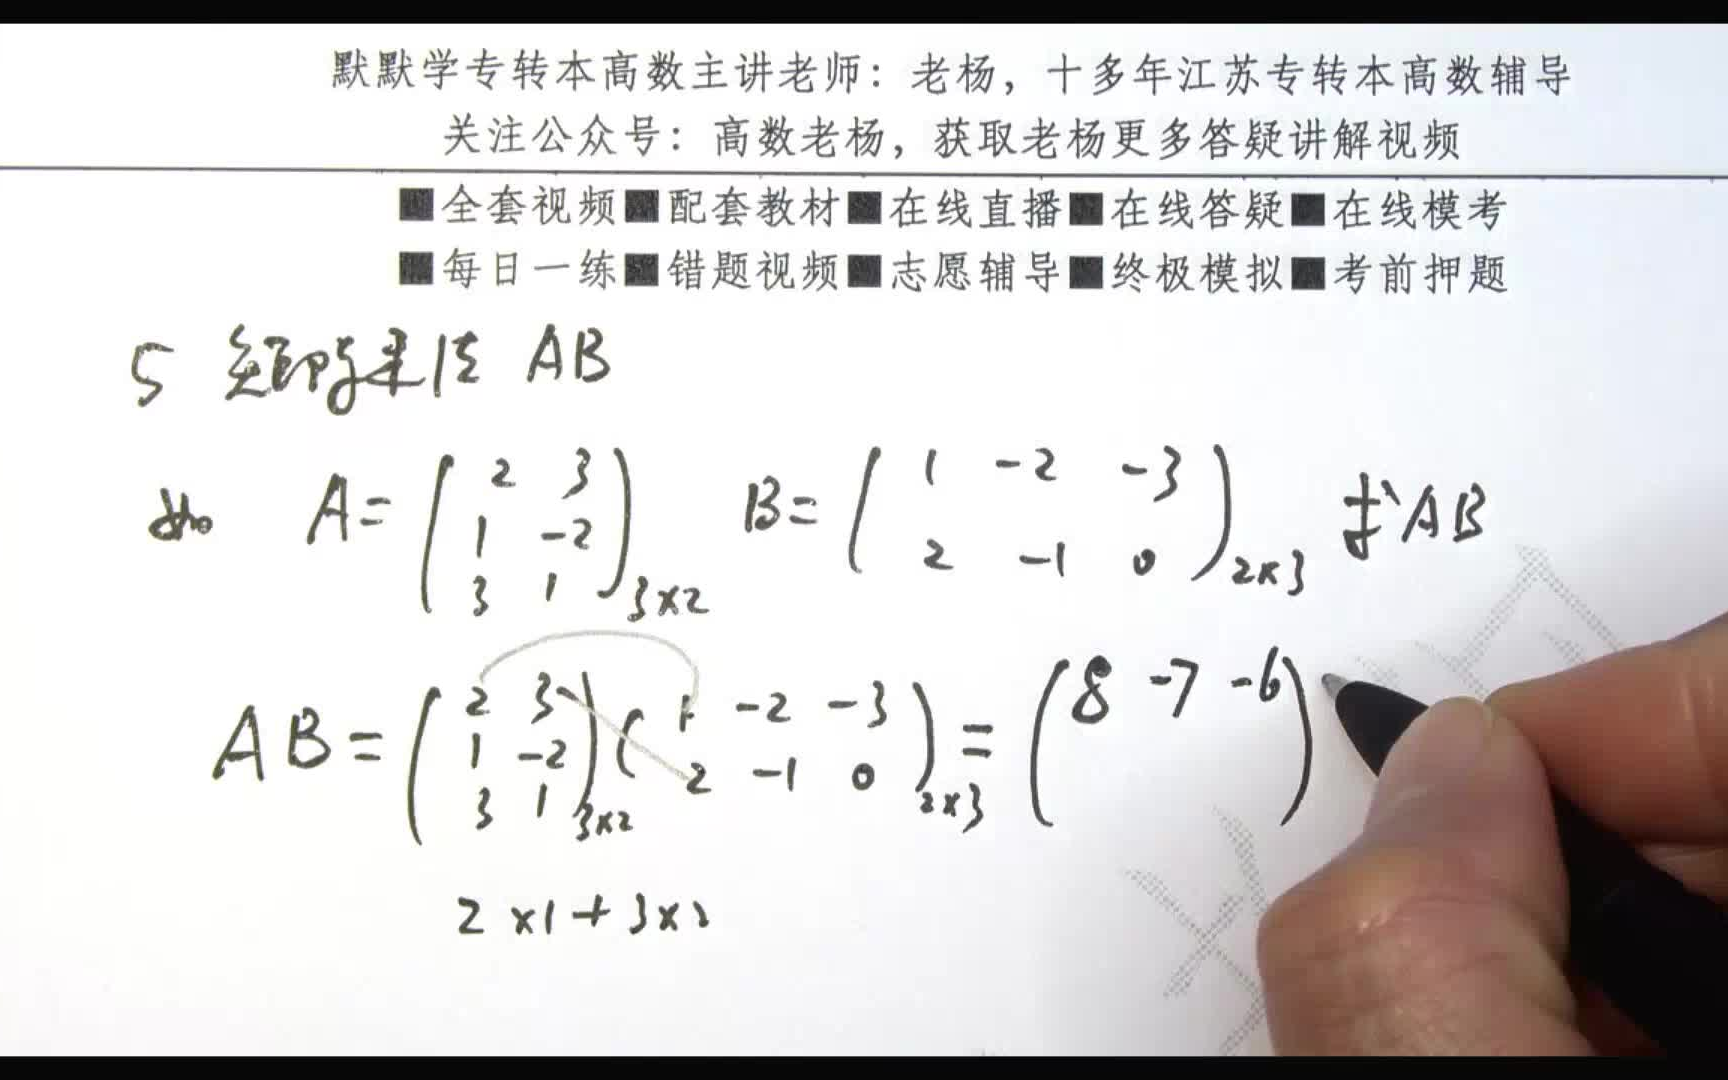 默默学专转本高数主讲老师：老杨，十多年江苏专转本高数辅导
关注公众号：高数老杨，获取老杨更多答疑讲解视频
■全套视频■配套教材■在线直播■在线答疑■在线模考
■每日一练■错题视频■志愿辅导■终极模拟■考前押题
5 矩阵乘法 AB
如 A= ( 2 3 B= ( 1 -2 -3 求AB
1 -2
3 1 )3×2 2 -1 0 )2×3
AB= ( 2 3 ( 1 -2 -3 = ( 8 -7 -6 )
1 -2
3 1 )3×2 2 -1 0 )2×3
2×1+3×2